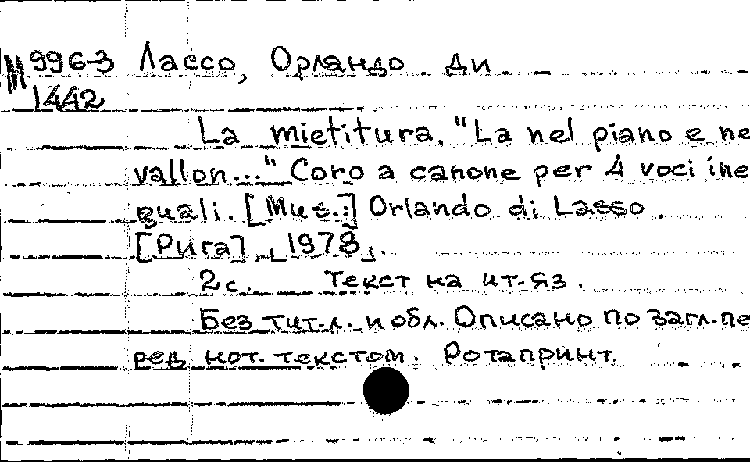 М 996-3 Лассо, Орландо ди
1442
La mietitura. "La nel piano e ne
vallon..." Coro a canone per 4 voci ine
guali. [Mus.:] Orlando di Lasso.
[Рига], [1978].
2с. Текст на ит. яз.
Без тит. л. и обл. Описано по загл. пе
ред нот. текстом. Ротапринт.